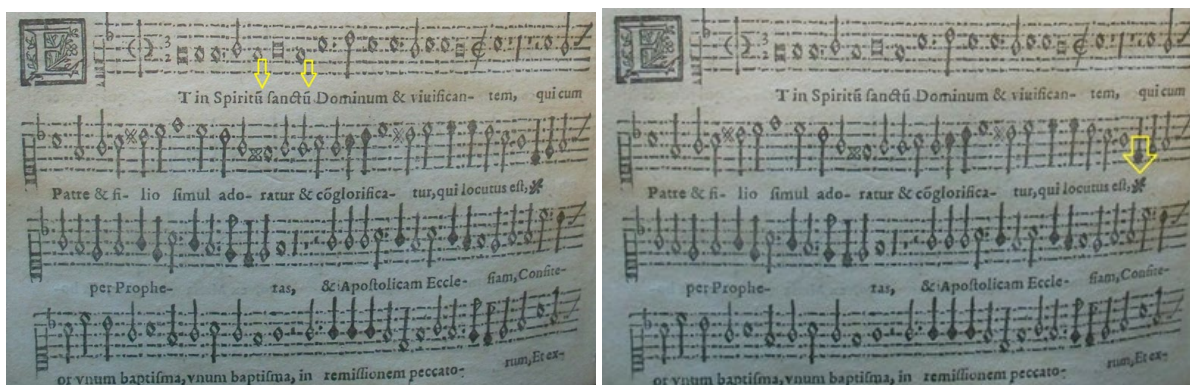 ET in Spiritū ſanctū Dominum & viuifican- tem, qui cum
Patre & fi- lio ſimul ado- ratur & cōglorifica- tur, qui locutus eſt,
per Prophe- tas, & Apoſtolicam Eccle- ſiam, Confite-
or vnum baptiſma, vnum baptiſma, in remiſſionem peccato- rum, Et ex-
ET in Spiritū ſanctū Dominum & viuifican- tem, qui cum
Patre & fi- lio ſimul ado- ratur & cōglorifica- tur, qui locutus eſt,
per Prophe- tas, & Apoſtolicam Eccle- ſiam, Confite-
or vnum baptiſma, vnum baptiſma, in remiſſionem peccato- rum, Et ex-